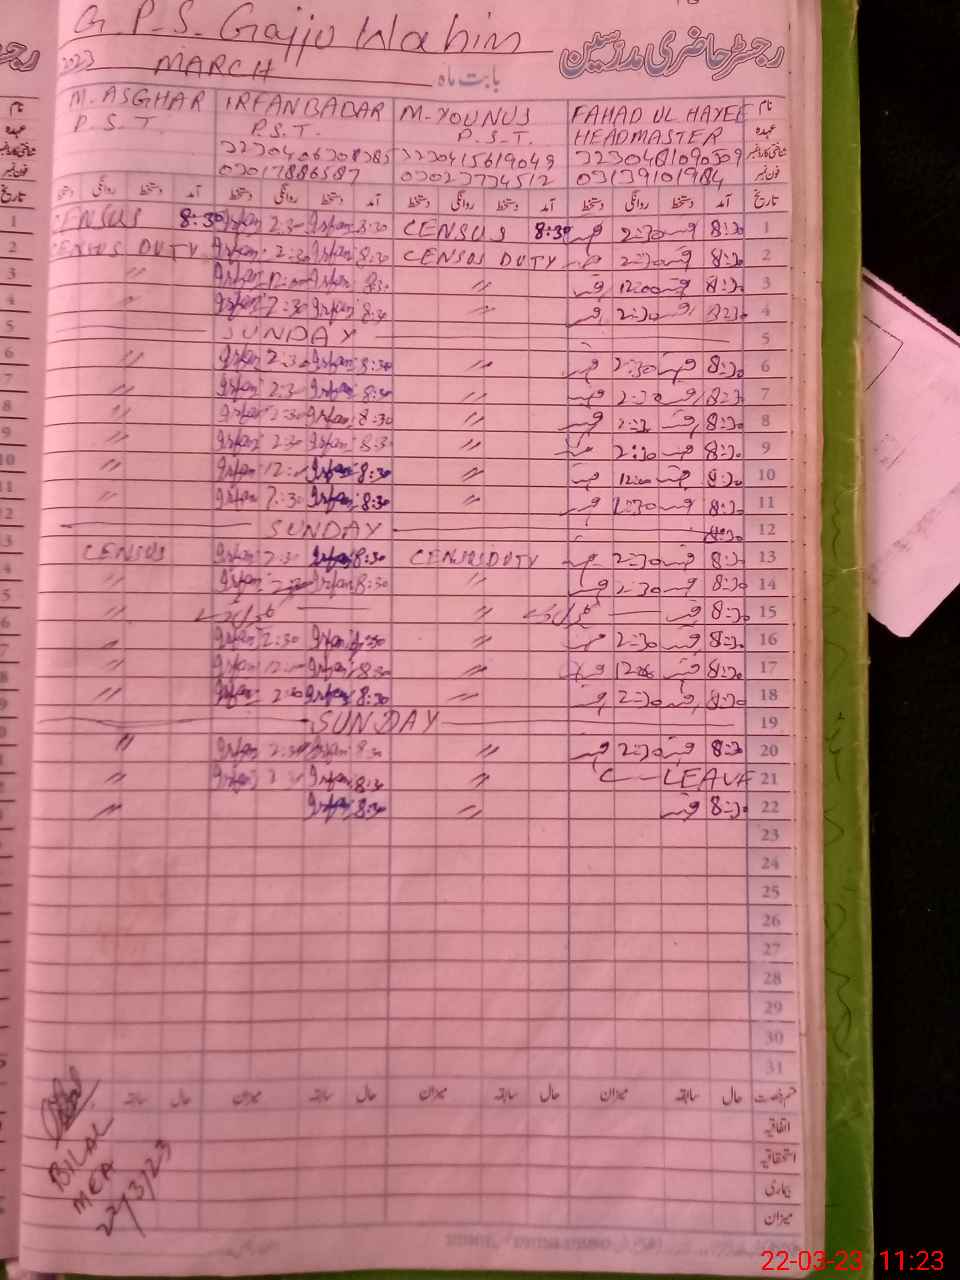 G.P.S. Gajju Wahin
رجسٹر حاضری مدرسین
2023 MARCH بابت ماہ
M. ASGHAR IRFAN BADAR M. YOUNUS FAHAD UL HAYEE نام
P.S.T. P.S.T. P.S.T. HEADMASTER عہدہ
3230415619049
03017886587 03023734512 03139101984 فون نمبر
دستخط روانگی دستخط آمد دستخط روانگی دستخط آمد دستخط روانگی دستخط آمد دستخط روانگی دستخط آمد تاریخ
CENSUS 8:30 Irfan 2:30 Irfan 8:30 CENSUS 8:30 2:30 8:30 1
CENSUS DUTY Irfan 2:30 Irfan 8:30 CENSUS DUTY 2:30 8:30 2
〃 Irfan 12:00 Irfan 8:30 〃 12:00 8:30 3
〃 Irfan 2:30 Irfan 8:30 〃 2:30 8:30 4
SUNDAY 5
〃 Irfan 2:30 Irfan 8:30 〃 2:30 8:30 6
〃 Irfan 2:30 Irfan 8:30 〃 2:30 8:30 7
〃 Irfan 2:30 Irfan 8:30 〃 2:30 8:30 8
〃 Irfan 2:30 Irfan 8:30 〃 2:30 8:30 9
〃 Irfan 12:00 Irfan 8:30 〃 12:00 8:30 10
〃 Irfan 2:30 Irfan 8:30 〃 2:30 8:30 11
SUNDAY 12
CENSUS Irfan 2:30 Irfan 8:30 CENSUS DUTY 2:30 8:30 13
〃 Irfan 2:30 Irfan 8:30 〃 2:30 8:30 14
〃 〃 8:30 15
〃 Irfan 2:30 Irfan 8:30 〃 2:30 8:30 16
〃 Irfan 12:00 Irfan 8:30 〃 12:00 8:30 17
〃 Irfan 2:30 Irfan 8:30 〃 2:30 8:30 18
SUNDAY 19
〃 Irfan 2:30 Irfan 8:30 〃 2:30 8:30 20
〃 Irfan 2:30 Irfan 8:30 〃 LEAVE 21
〃 Irfan 8:30 〃 8:30 22
23
24
25
26
27
28
29
30
31
سابقہ حال میزان سابقہ حال میزان سابقہ حال میزان سابقہ حال قسم رخصت
اتفاقیہ
استحقاقیہ
بیماری
میزان
BILAL
MEA
22/3/23
22-03-23 11:23